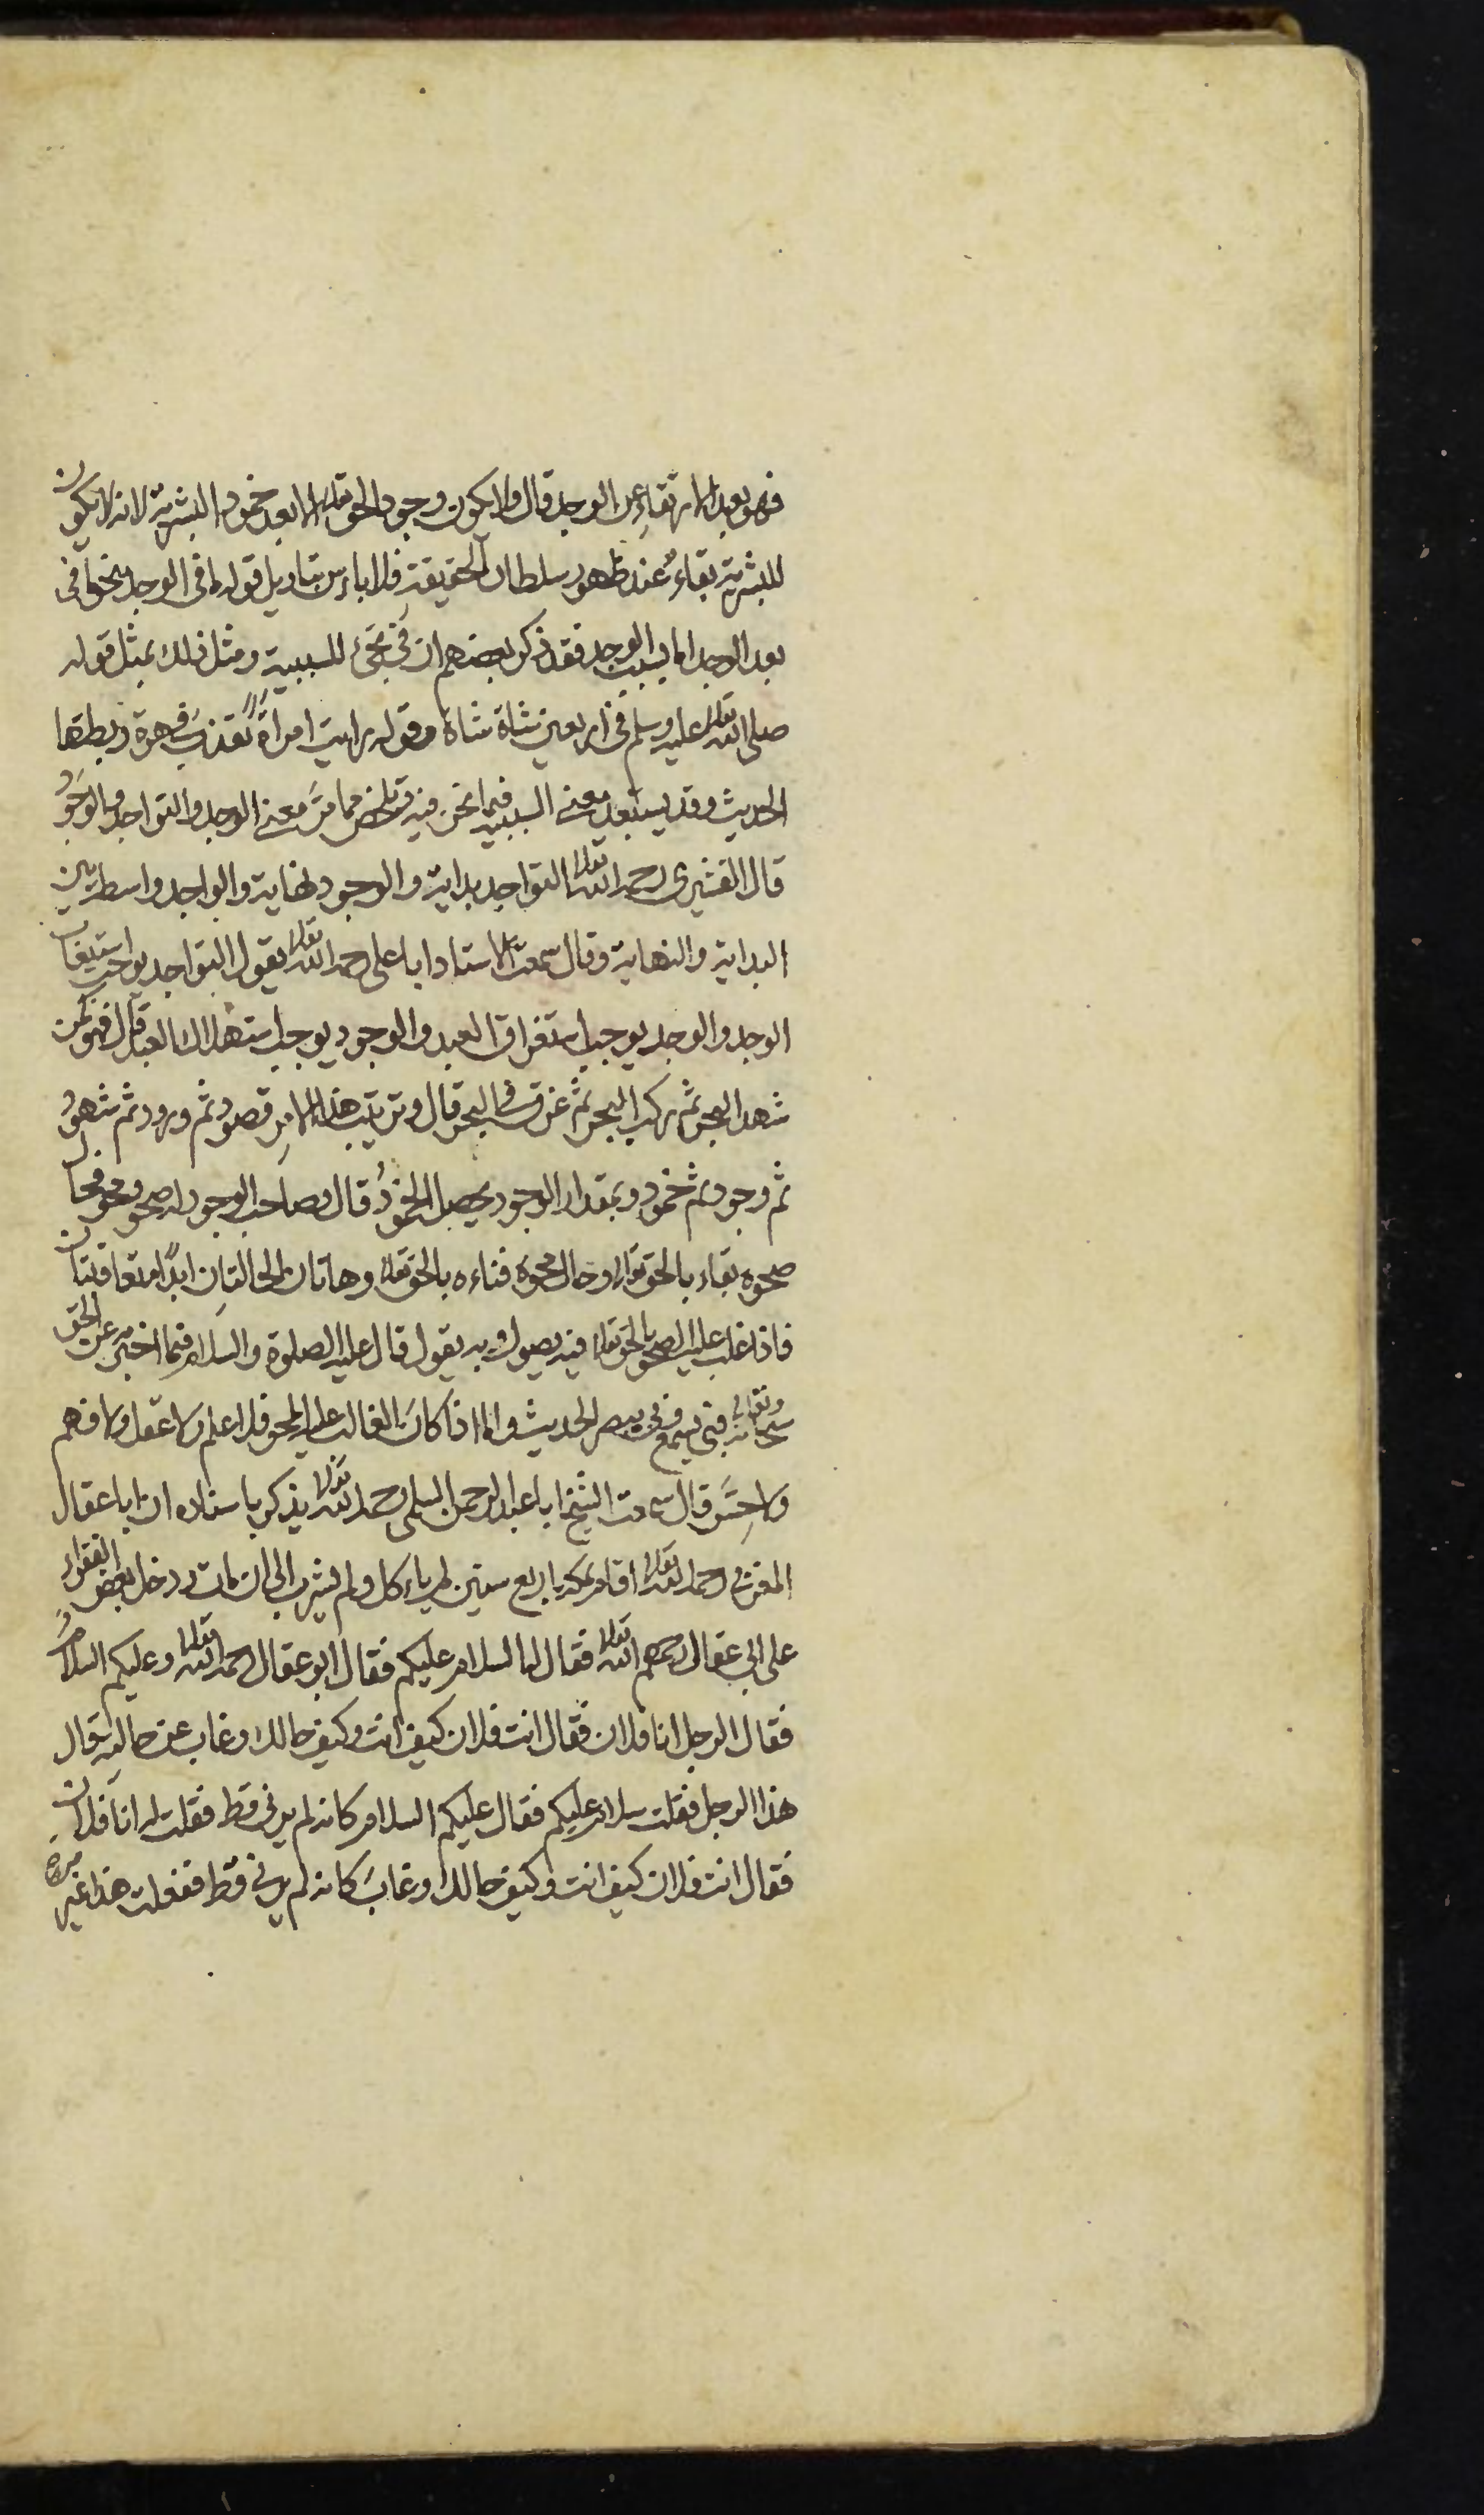 فهو بعد الارتقاء عن الوجد قال ولا يكون وجود الحق تعالى الا بعد خمود البشرية لانه لا يكون
للبشرية بقاءٌ عند ظهور سلطان الحقيقة فلا باءس بتاويل قوله ما فى الوجد بنحو ما فى
بعد الوجد او بسبب الوجد فقد ذكر بعضهم ان فى تجئ للسببية ومثل ذلك بمثل قوله
صلى الله تعالى عليه وسلم فى اربعين شاة شاة وقوله رايت امراةً تعذب فى هرة ربطتها
الحديث وقد يستبعد معنى السببية فيما نحن فيه وتلخص مما مرَّ معنى الوجد والتواجد والوجودُ
قال القشيرى رحمه الله تعالى التواجد بداية والوجود نهاية والواجد واسطة بين
البداية والنهاية وقال سمعت الاستاد ابا على رحمه الله تعالى يقول التواجد يوجب استيعاب
الوجد والوجد يوجب استغراق العبد والوجود يوجب استهلاك العبد قال فهو كمن
شهد البحر ثم ركب البحر ثم غرق فى البحر قال وترتيب هذا الامرِ قصود ثم ورود ثم شهود
ثم وجود ثم خمود وبمقدار الوجود يحصل الخمودُ قال وصاحب الوجود له صحو ومحو فحال
صحوه بقاءه بالحق تعالى وحال محوه فناءه بالحق تعالى وهاتان الحالتانِ ابدًا متعاقبتان
فاذا غلب عليه الصحو بالحق تعالى فبه يصول وبه يقول قال عليه الصلوة والسلام فيما اخبر به عن الحق
سبحانه وتعالى فبى يسمع وبى يبصر الحديث واما اذا كان الغالب عليه المحو فلا علم ولا عقل ولا فهم
ولا حِسَّ قال سمعت الشيخ ابا عبد الرحمن السلمى رحمه الله تعالى يذكر باسناده ان ابا عقال
المغربى رحمه الله تعالى اقام بمكة اربع سنين لم ياءكل ولم يشرب الى ان مات ودخل بعض الفقراء
على ابى عقال رحمهم الله تعالى فقال له السلام عليكم فقال ابو عقال رحمه الله تعالى وعليكم السلامُ
فقال الرجل انا فلان فقال انت فلان كيف انت وكيف حالك وغاب عن حالته قال
هذا الرجل فقلت سلام عليكم فقال عليكم السلام كانه لم يرنى قط فقلت له انا فلان
فقال انت فلان كيف انت وكيف حالك وغابَ كانه لم يرنى قط ففعلت هذا غير مرة